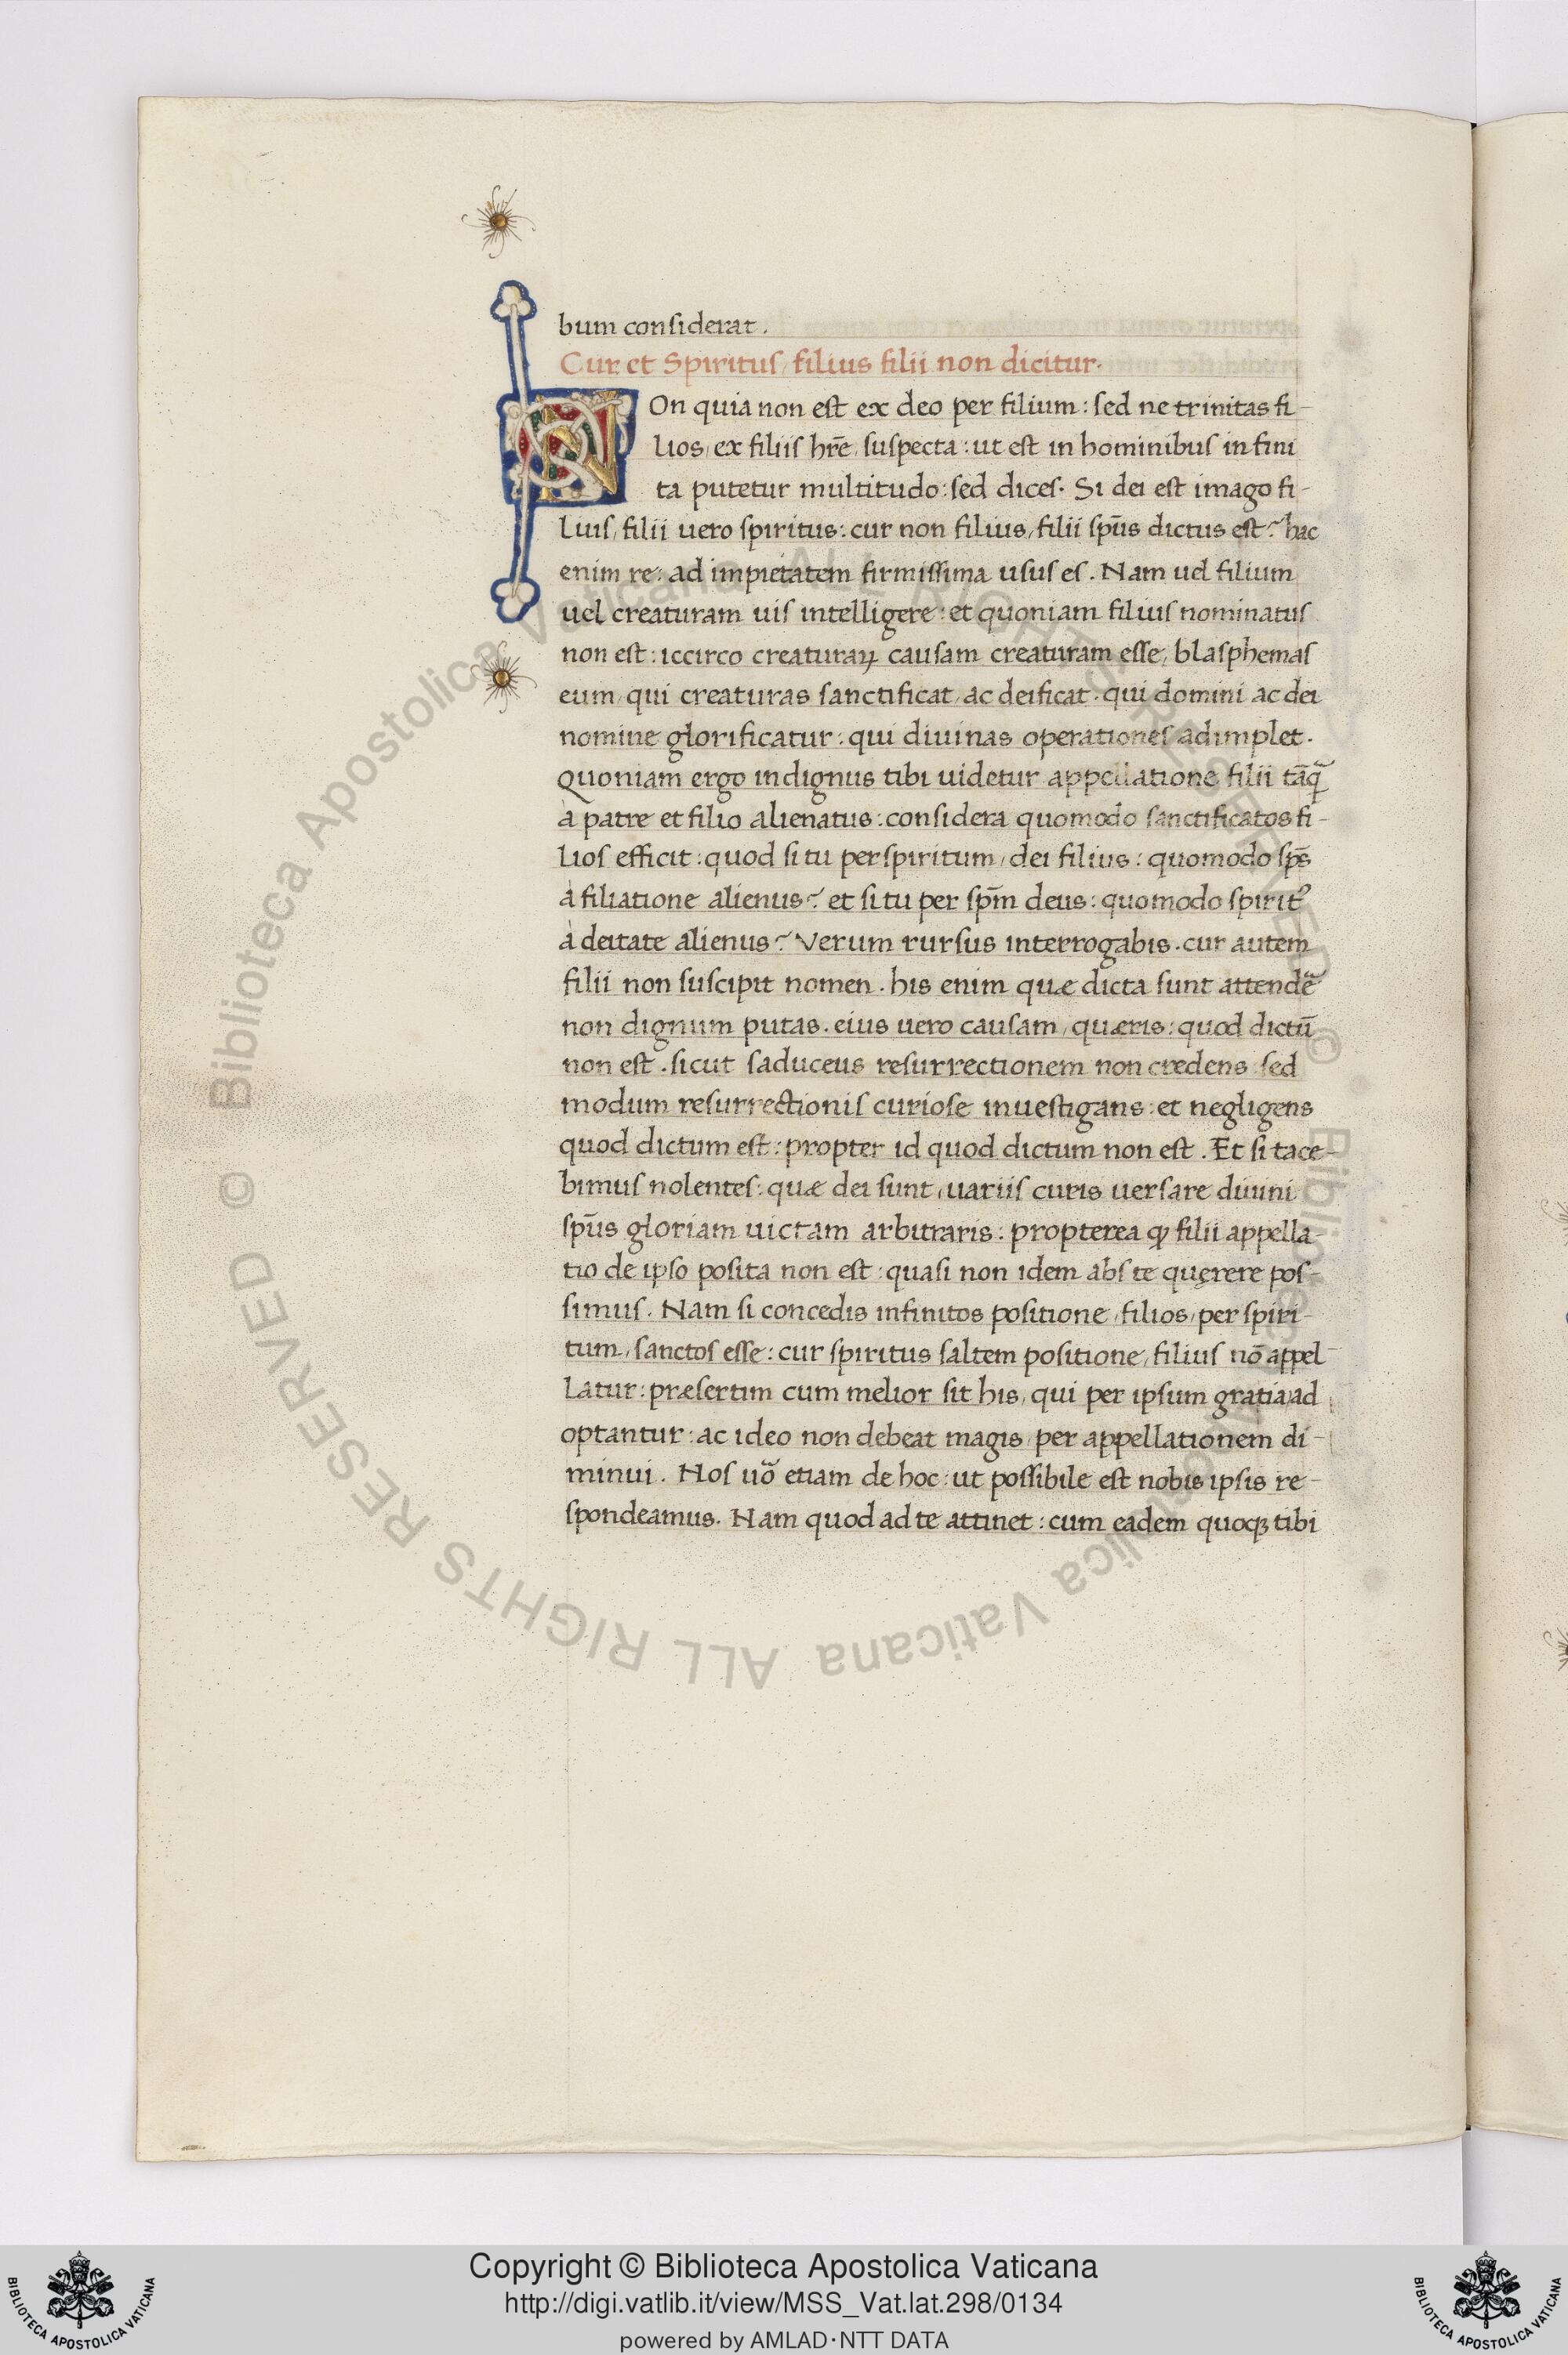 bum considerat.
Cur et Spiritus, filius filii non dicitur.
NOn quia non est ex deo per filium: sed ne trinitas fi-
lios, ex filiis hr̄e, suspecta: ut est in hominibus infini
ta putetur multitudo: sed dices. Si dei est imago fi-
lius, filii uero spiritus: cur non filius, filii sp̄us dictus est? hac
enim re: ad impietatem firmissima usus es. Nam uel filium
uel creaturam uis intelligere: et quoniam filius nominatus
non est: iccirco creaturaꝝ causam creaturam esse, blasphemas
eum, qui creaturas sanctificat, ac deificat. qui domini ac dei
nomine glorificatur: qui diuinas operationes adimplet.
Quoniam ergo indignus tibi uidetur appellatione filii tāq̃
à patre et filio alienatus: considera quomodo sanctificatos fi-
lios efficit: quod si tu per spiritum, dei filius: quomodo sp̄s
à filiatione alienus? et si tu per sp̄m deus: quomodo spiritꝰ
à deitate alienus? Verum rursus interrogabis. cur autem
filii non suscipit nomen. his enim quæ dicta sunt attendẽ
non dignum putas. eius uero causam, quæris: quod dictū
non est. sicut saduceus resurrectionem non credens: sed
modum resurrectionis curiose inuestigans: et negligens
quod dictum est: propter id quod dictum non est. Et si tace-
bimus nolentes: quæ dei sunt, uariis curis uersare diuini
sp̄us gloriam uictam arbitraris: propterea ꝙ filii appella-
tio de ipso posita non est: quasi non idem abs te quęrere pos-
simus. Nam si concedis infinitos positione, filios, per spiri-
tum, sanctos esse: cur spiritus saltem positione, filius nō appel-
latur: præsertim cum melior sit his, qui per ipsum gratia, ad
optantur: ac ideo non debeat magis, per appellationem di-
minui. Nos uõ etiam de hoc: ut possibile est nobis ipsis re-
spondeamus. Nam quod ad te attinet: cum eadem quoqꝫ tibi
© Biblioteca Apostolica Vaticana ALL RIGHTS RESERVED
© Biblioteca Apostolica Vaticana ALL RIGHTS RESERVED
BIBLIOTECA APOSTOLICA VATICANA
Copyright © Biblioteca Apostolica Vaticana
http://digi.vatlib.it/view/MSS_Vat.lat.298/0134
powered by AMLAD·NTT DATA
BIBLIOTECA APOSTOLICA VATICANA